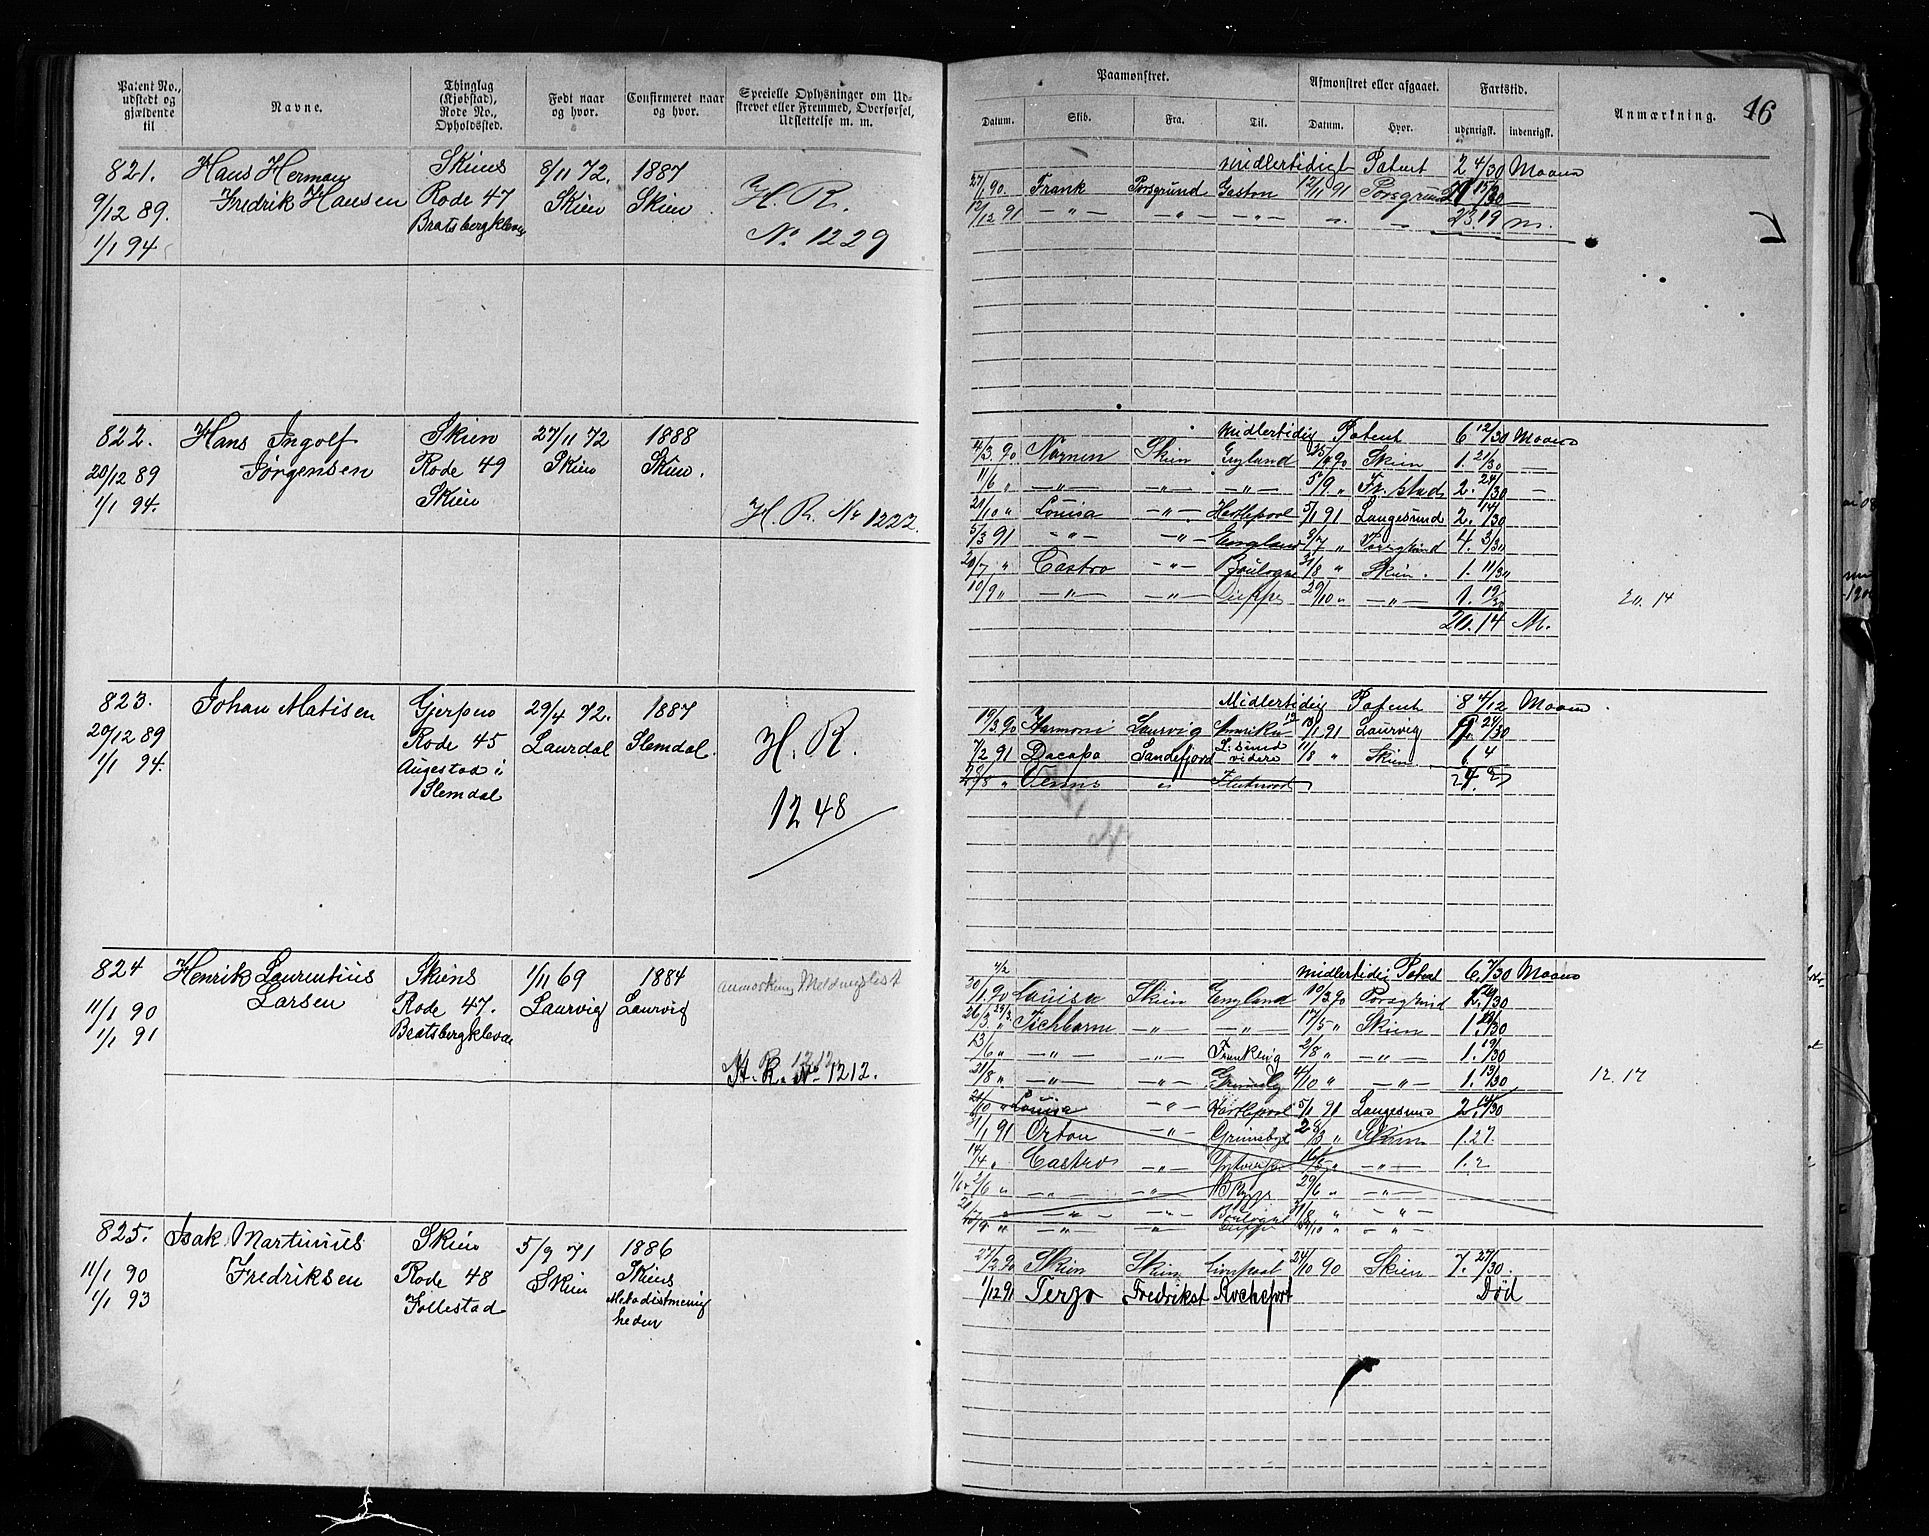 Patent No., udstedt og gjældende til
Navne.
Thinglag (Kjøbstad), Rode No., Opholdssted.
Født naar og hvor.
Confirmeret naar og hvor.
Specielle Oplysninger om Udskrevet eller Fremmed, Overførsel, Udslettelse m. m.
Paamønstret.
Afmønstret eller afgaaet.
Fartstid.
Anmærkning.
46
Datum. Skib. Fra. Til. Datum. Hvor. udenrigsk. indenrigsk.
821. Hans Herman Skiens 8/11 72. 1887
9/12 89. Fredrik Hansen Rode 47 Skien Skien. H. R.
1/1 94. Bratsbergkleven No 1229
midlertidigt Patent 2 4/30 Maaned
27/1 90. Frank Porsgrund Gaston 12/1 91 Porsgrund
12/12 91 — " — — " — — " —
23. 19 m.
822. Hans Ingolf Skien 27/11 72 1888
20/12 89 Jørgensen Rode 49 Skien Skien.
1/1 94. Skien H. R. No 1222.
midlertidig Patent 6 12/30 Maaned
14/3 90 Nornen Skien England Skien 1. 21/30
11/6 " — " — — " — — " — 5/9 " Fr. stad 2. 24/30
21/10 " Louisa — " — Hartlepool 5/1 91 Langesund 2. 14/30
5/3 91 — " — — " — England 9/7 " Porsgrund 4. 3/30
20/7 " Castro — " — Boulogne 31/8 " Skien. 1. 11/30
10/9 " — " — — " — Dieppe 29/10 " — " — 1. 19/30
20. 14 M.
20. 14
823. Johan Matisen Gjerpen 29/4 72. 1887
20/12 89 Rode 45 Laurdal Slemdal. H. R.
1/1 94. Augestad i
Slemdal 1248
Midlertidig Patent 8 4/12 Maaned
19/3 90 Harmoni Laurvig Amerika 13/1 91 Laurvig
7/2 91 Dacapo Sandefjord L.sund videre 11/8 " Skien 6. 4
Venus " Fleetwood
824 Henrik Laurentius Skiens 1/11 69 1884
11/1 90 Larsen Rode 47. Laurvig Laurvig
1/1 91 Bratsbergkleven
H. R. No 1212.
midlertidig Patent 6. 7/30 Maaned
30/1 90 Louisa Skien England 10/3 90 Porsgrund
26/3 " Tichborne — " — — " — 17/5 " Skien
13/6 " — " — — " — 2/8 " — " — 1. 19/30
21/8 " — " — — " — Grimsby 4/10 " — " — 1. 13/30
12. 17
21/10 " Louisa — " — Hartlepool 5/1 91 Langesund 2. 14/30
31/1 91 Orton — " — Grimsby 28/3 " Skien 1. 27.
14/4 " Castro — " — " — " — 1. 2
2/6 " — " — — " — 29/6 " — " —
" — " — — " — Boulogne 31/8 " — " —
10/9 " — " — " Dieppe 29/10 " — " —
825. Isak Martinius Skien 5/9 71 1886
11/1 90 Fredriksen Rode 48 Skien Skiens
1/1 93 Follestad Metodistmenigheden
27/2 90 Skien Skien Liverpool 24/10 90 Skien 7. 27/30.
1/12 91 Terzo Fredrikst Rochefort Død